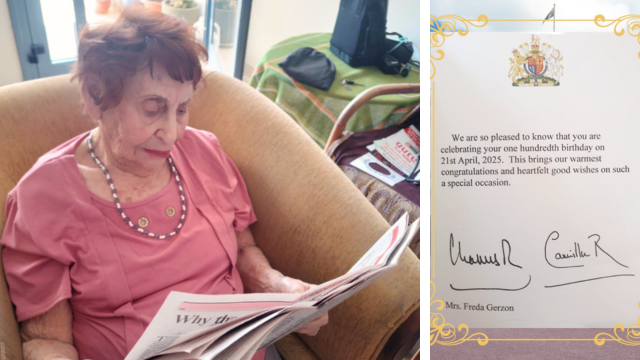 Why the
We are so pleased to know that you are
celebrating your one hundredth birthday on
21st April, 2025. This brings our warmest
congratulations and heartfelt good wishes on such
a special occasion.
Charles R Camilla R
Mrs. Freda Gerzon